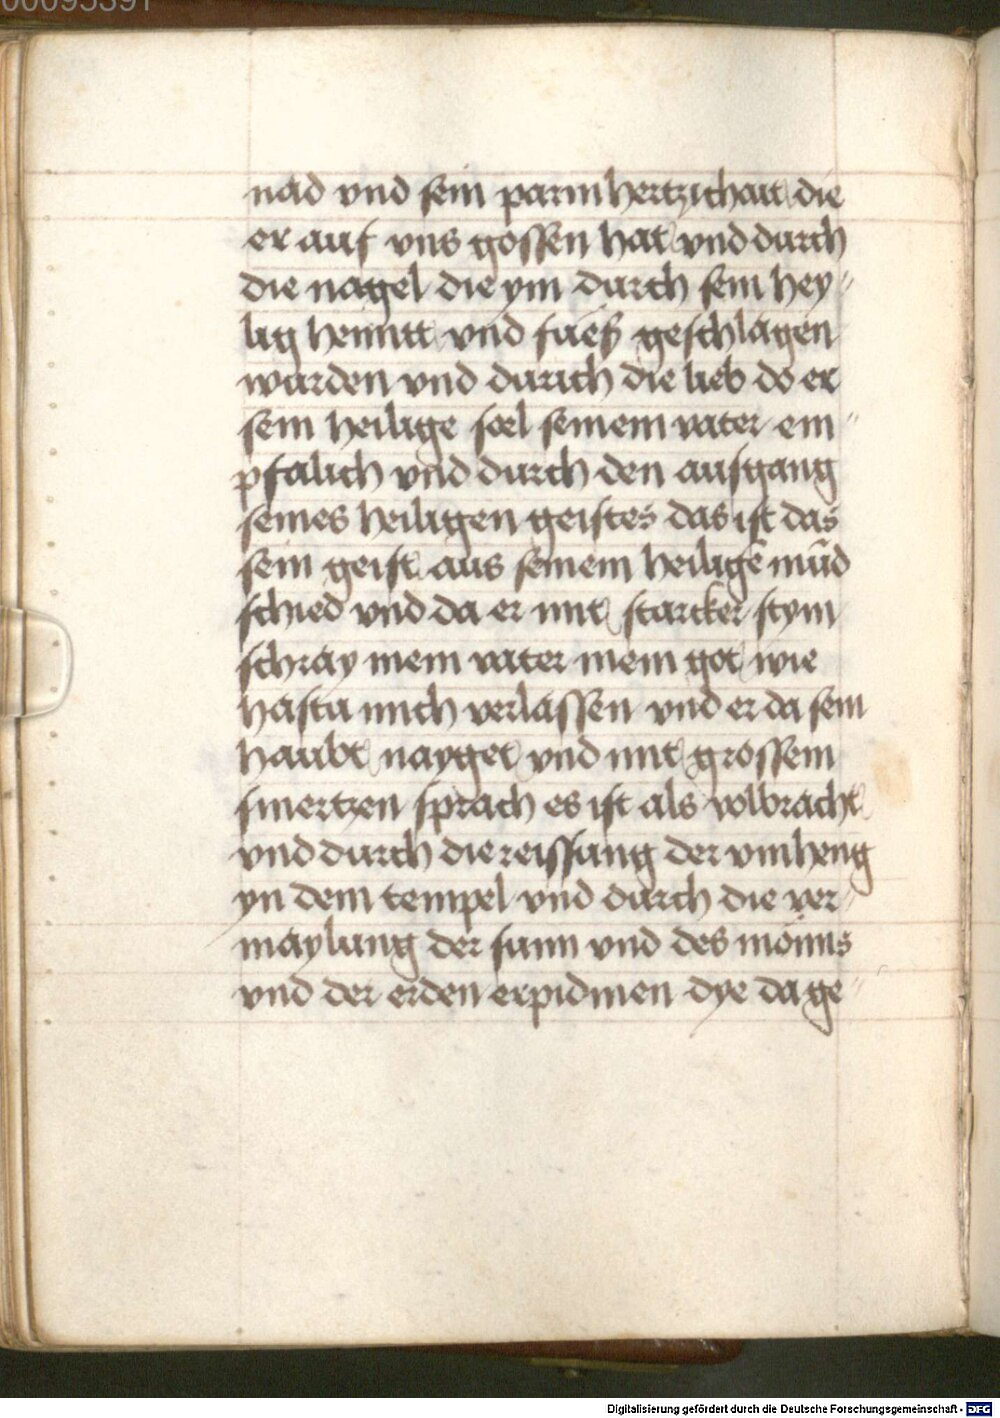 00095391
nad vnd sein parmhertzichait die
er auf vns gossen hat vnd durch
die nagel die ym durch sein hey-
lig hennt vnd füeß geschlagen
wurden vnd durich die lieb do er
sein heilige sel seinem vater em-
pfalich vnd durch den ausgang
seines heiligen geistes das ist das
sein geist aus seinem heiligē mūd
schied vnd da er mit starcker stym
schray mein vater mein got wie
hastu mich verlassen vnd er da sein
haubt nayget vnd mit grossem
smertzen sprach es ist als volbracht
vnd durch die reissung der vmheng
yn dem tempel vnd durch die ver-
maylung der sunn vnd des möns
vnd der erden erpidmen dye da ge-
Digitalisierung gefördert durch die Deutsche Forschungsgemeinschaft - DFG